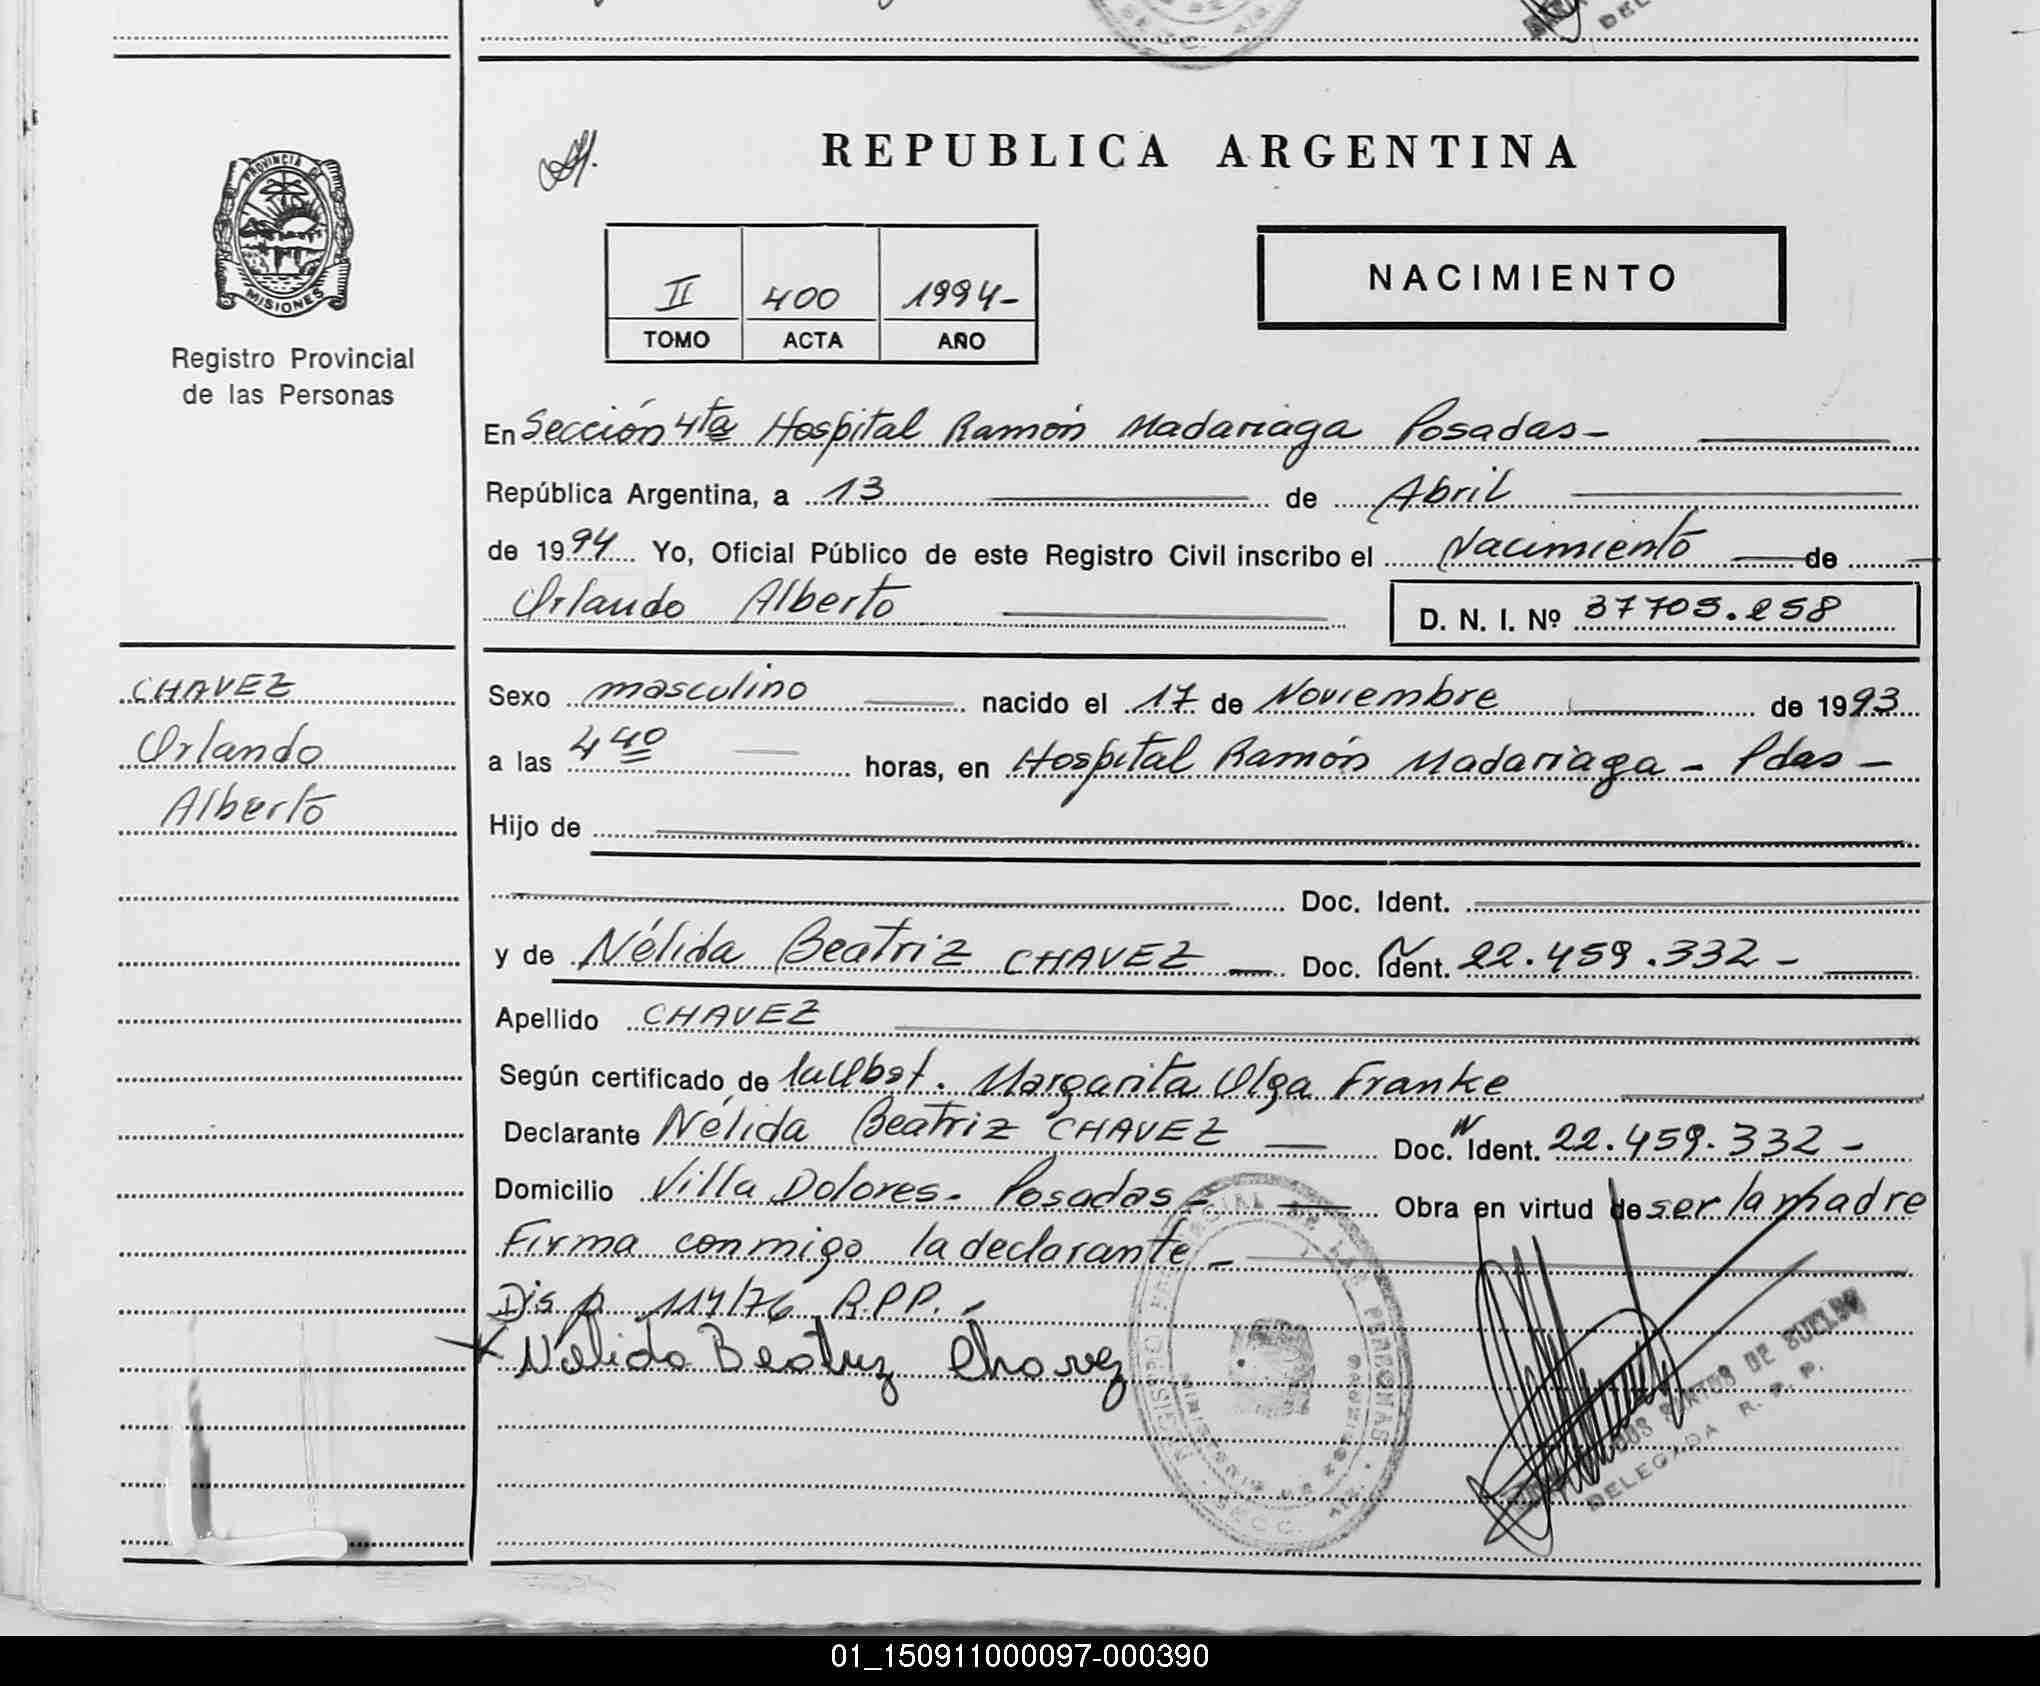 REPUBLICA ARGENTINA
PROVINCIA DE
MISIONES
Registro Provincial
de las Personas
II 400 1994-
TOMO ACTA AÑO
NACIMIENTO
En Sección 4ta Hospital Ramón Madariaga Posadas-
República Argentina, a 13 de Abril
de 1994 Yo, Oficial Público de este Registro Civil inscribo el Nacimiento de
Orlando Alberto D. N. I. Nº 37705.258
CHAVEZ
Orlando
Alberto
Sexo masculino nacido el 17 de Noviembre de 1993
a las 4 40 horas, en Hospital Ramón Madariaga - Pdas -
Hijo de
Doc. Ident.
y de Nélida Beatriz CHAVEZ Doc. Ident. 22.459.332-
Apellido CHAVEZ
Según certificado de Obst. Margarita Olga Franke
Declarante Nélida Beatriz CHAVEZ Doc. Ident. 22.459.332-
Domicilio Villa Dolores- Posadas- Obra en virtud de ser la madre
Firma conmigo la declarante-
Disp. 114/76 R.P.P.-
Nelida Beatriz Chavez
SANTOS DE
DELEGADA R. P. P.
01_150911000097-000390